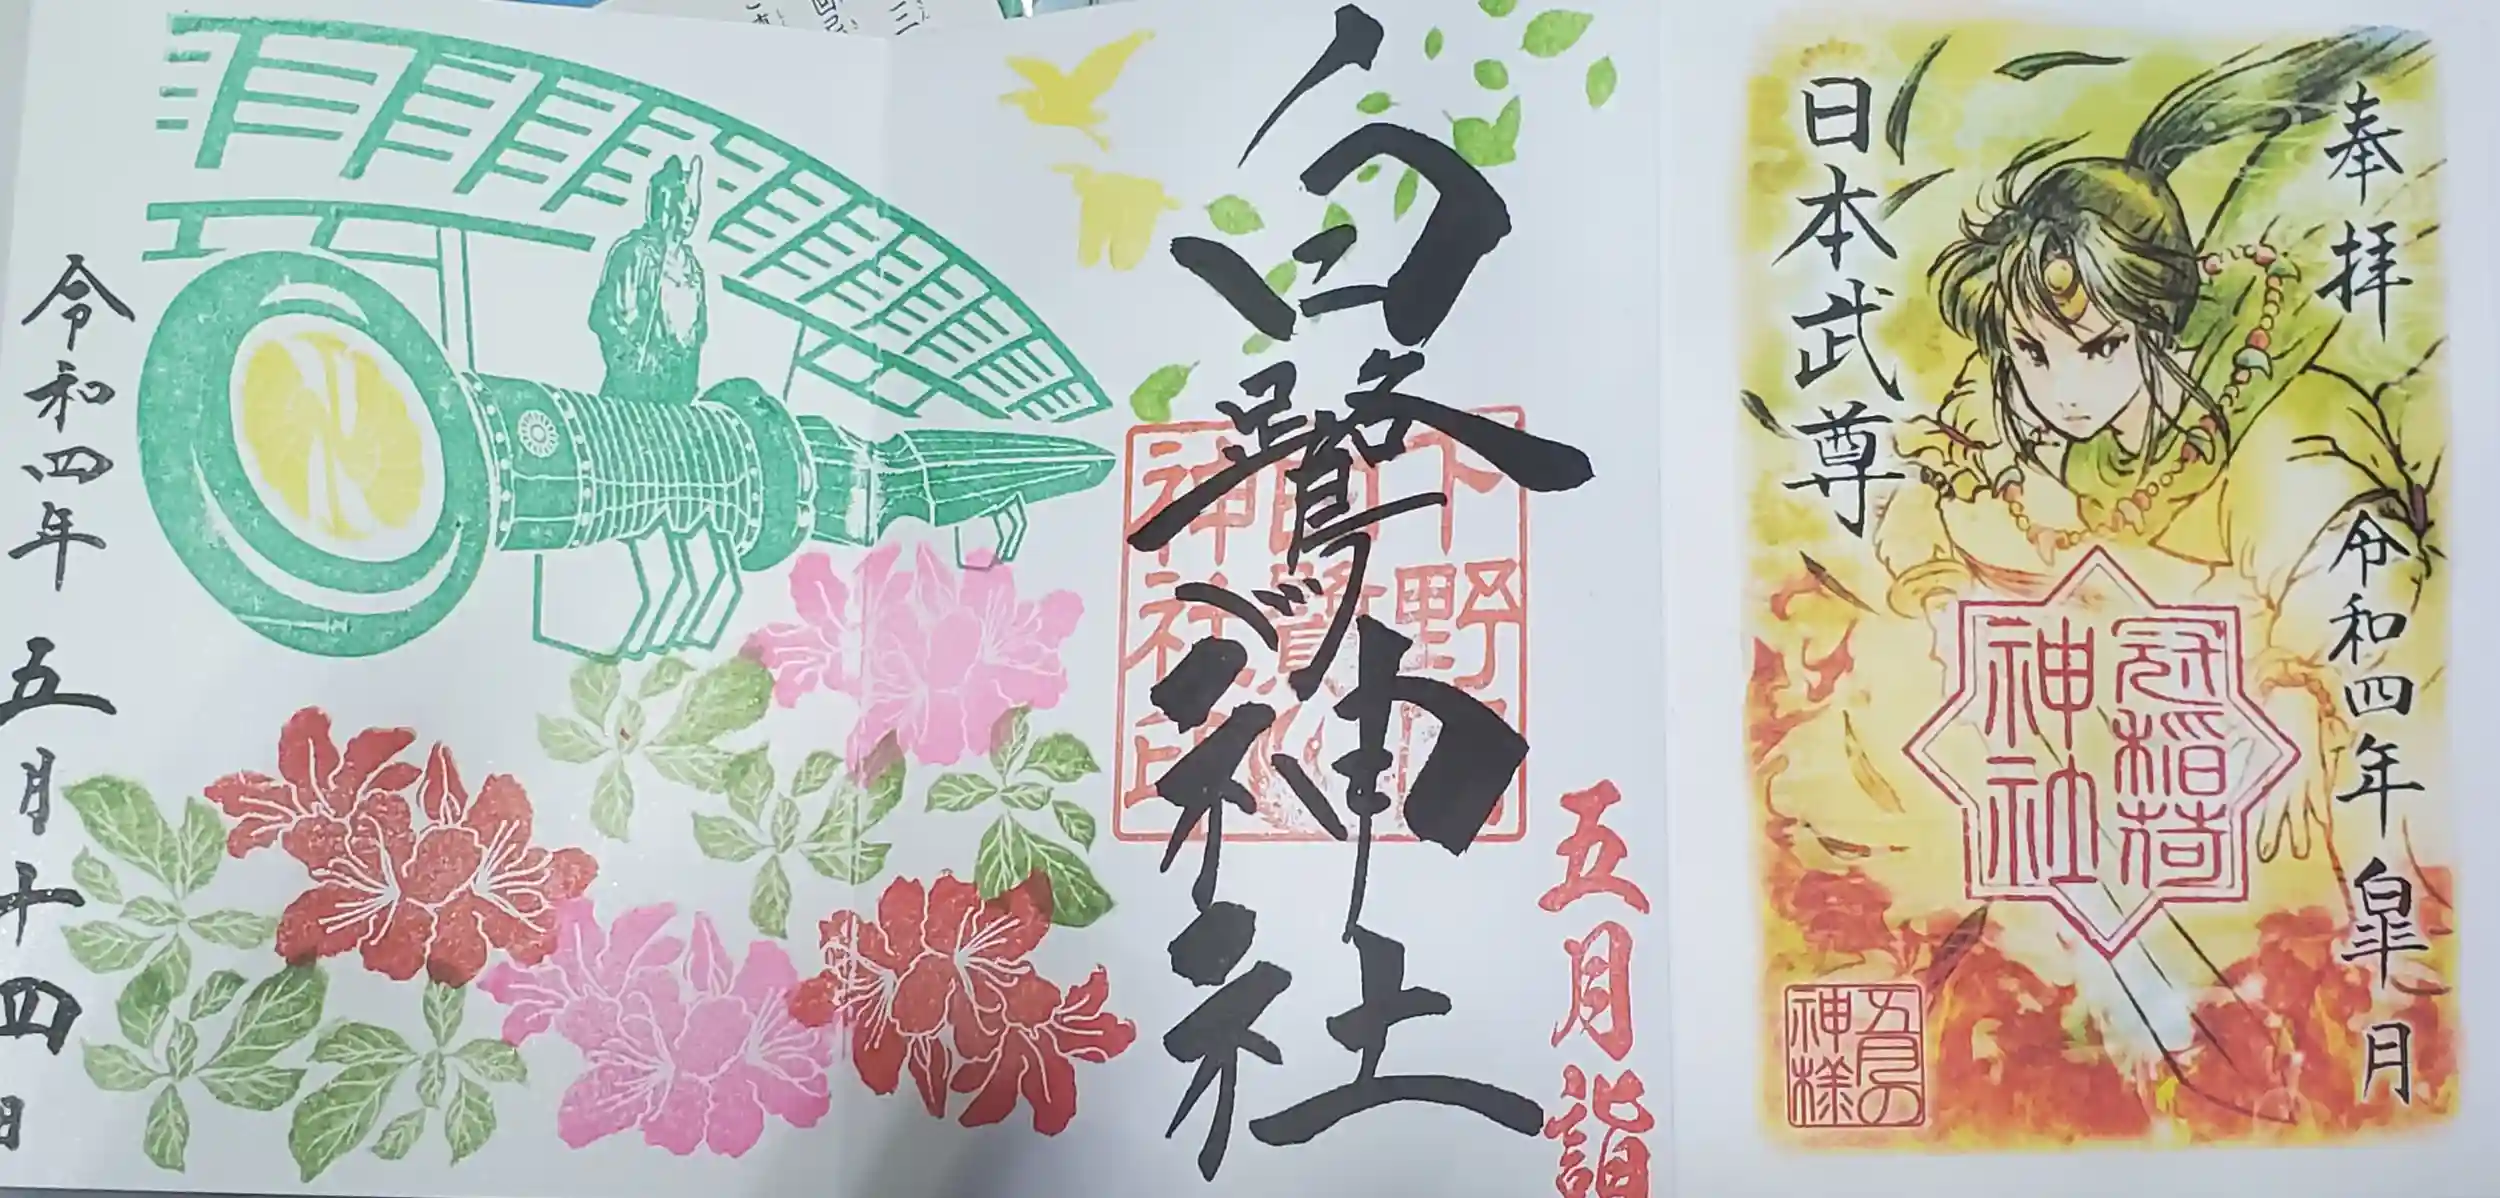 奉拝
令和四年皐月
日本武尊
冠稲荷
神社
五月の
神様
五月詣
白鷺神社
下野国
神社印
令和四年 五月十四日